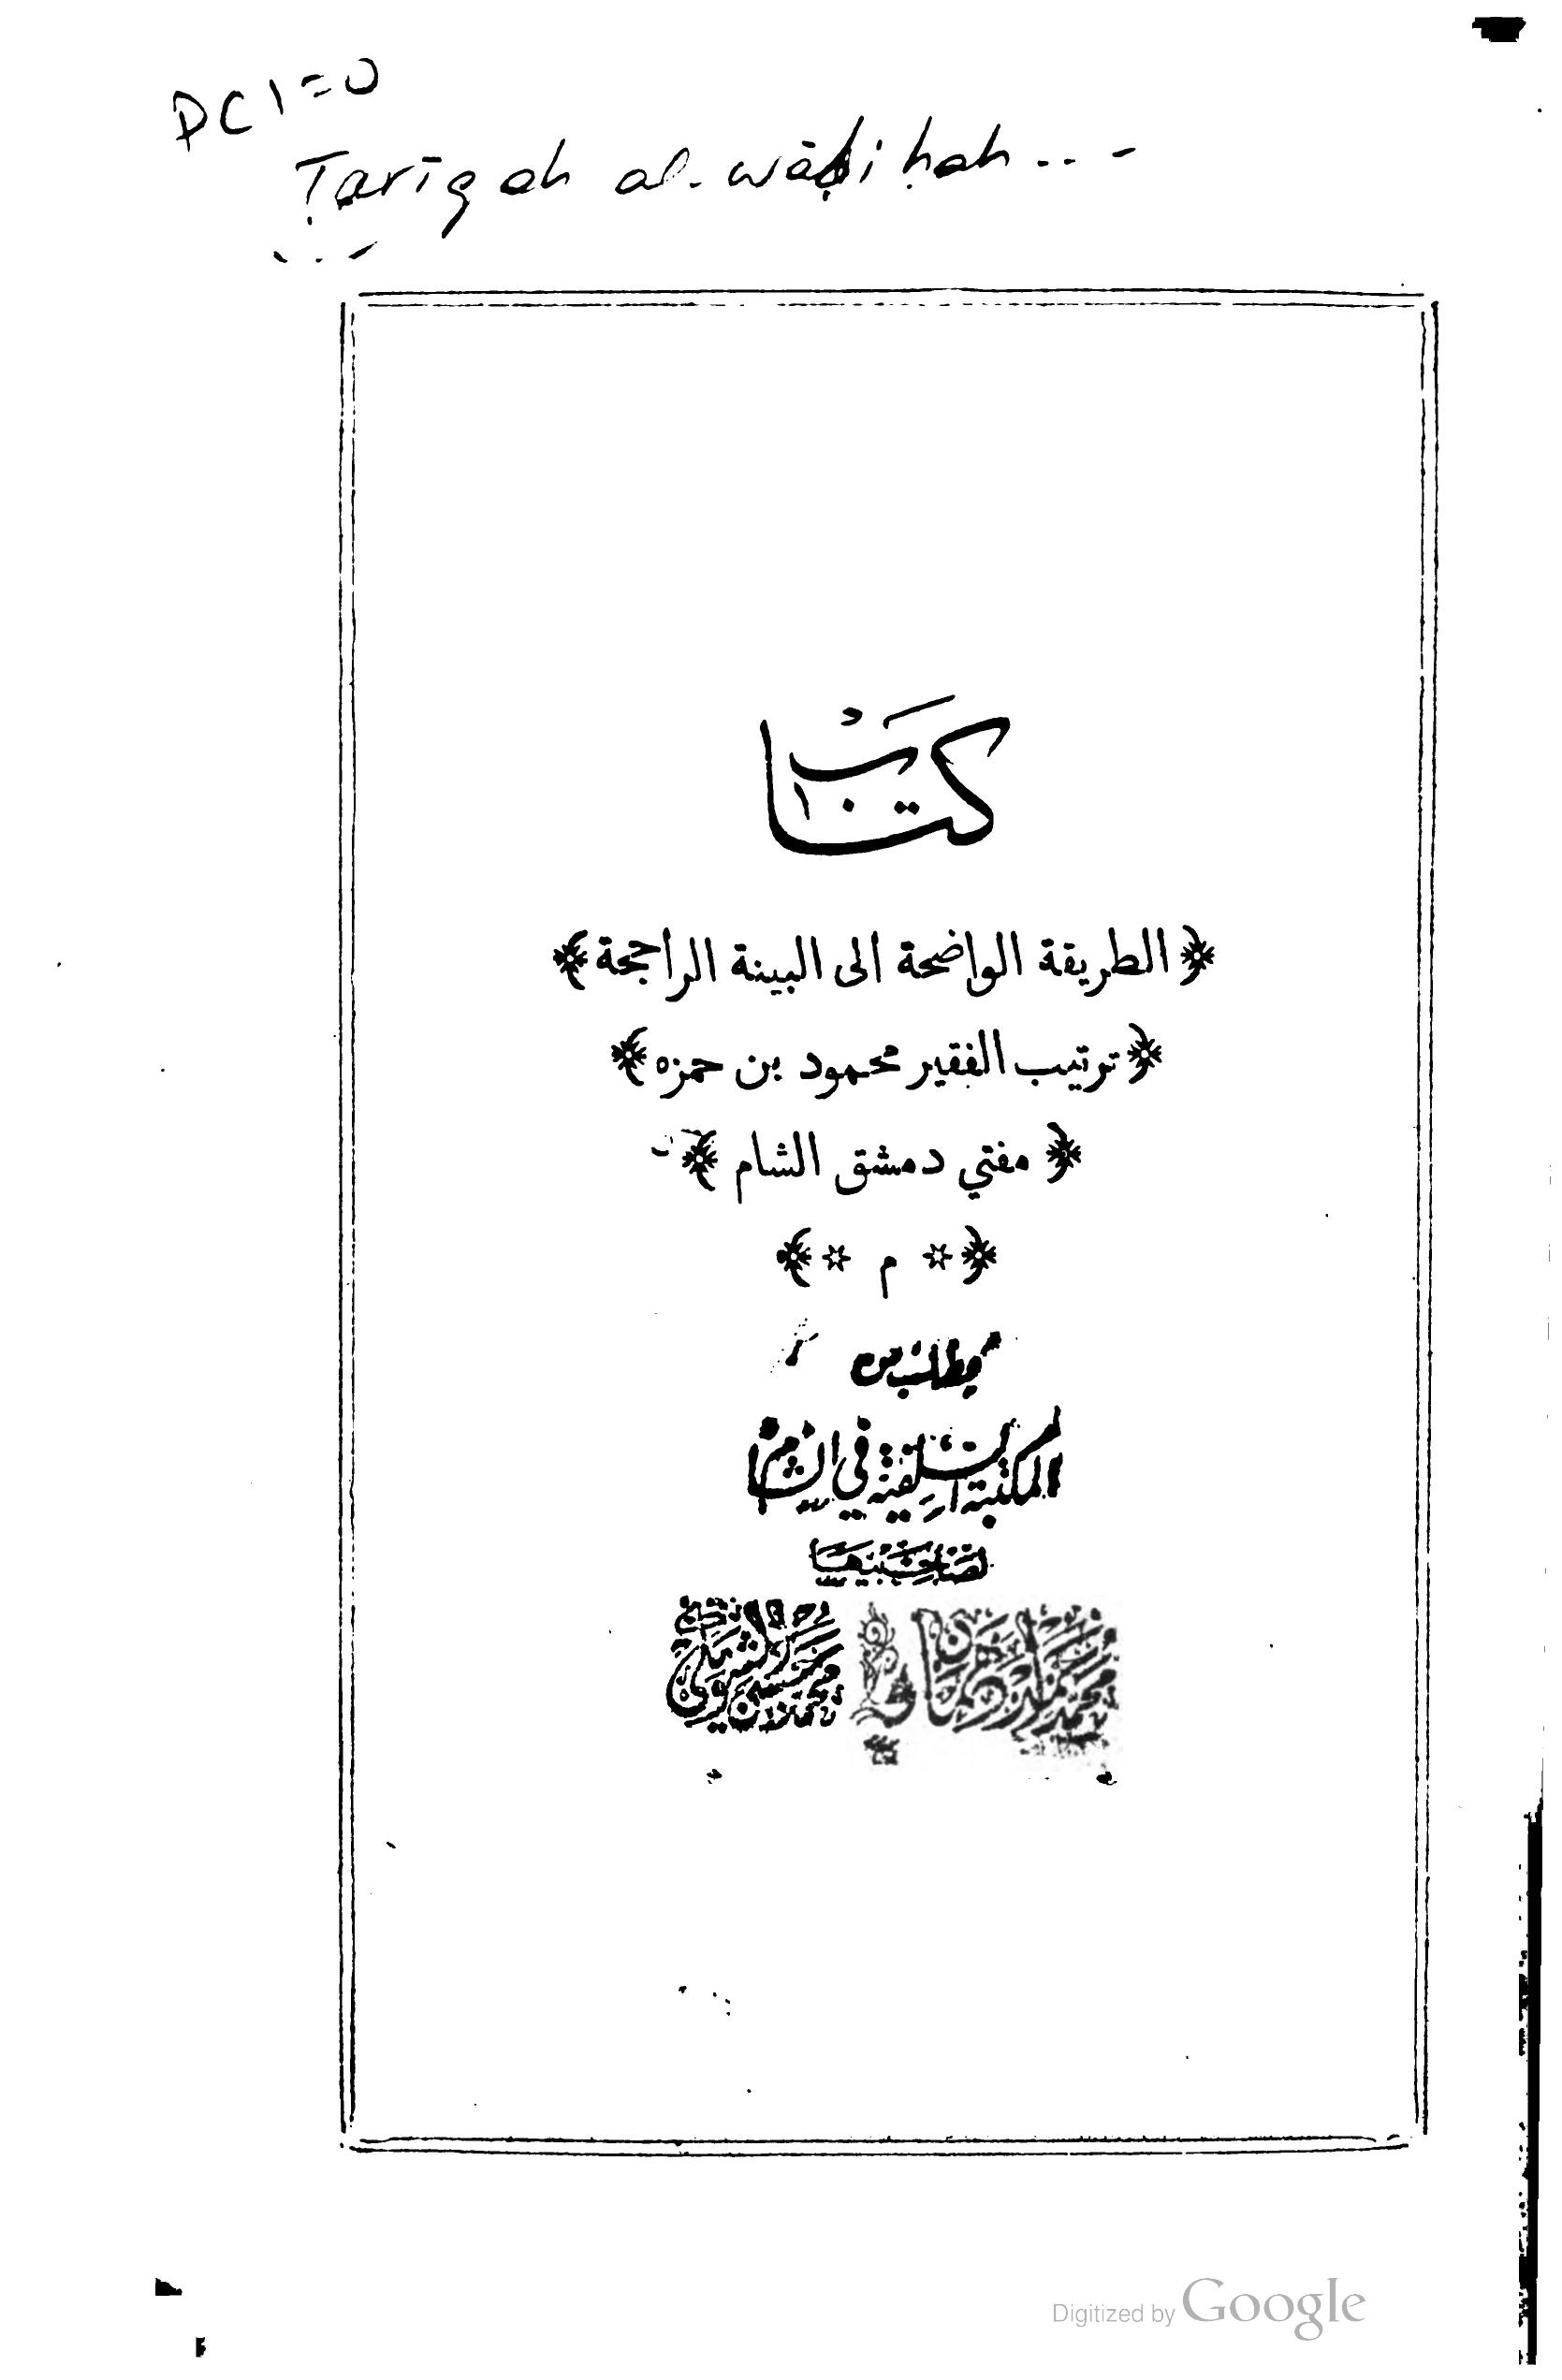 DC1=0
Ṭarīqah al-wāḍiḥah...-
كتاب
﴿ الطريقة الواضحة الى البينة الراجحة ﴾
﴿ ترتيب الفقير محمود بن حمزه ﴾
﴿ مفتي دمشق الشام ﴾
﴿ * م * ﴾
يطلب من
المكتبة السلفية في
لصاحبيها
Digitized by Google